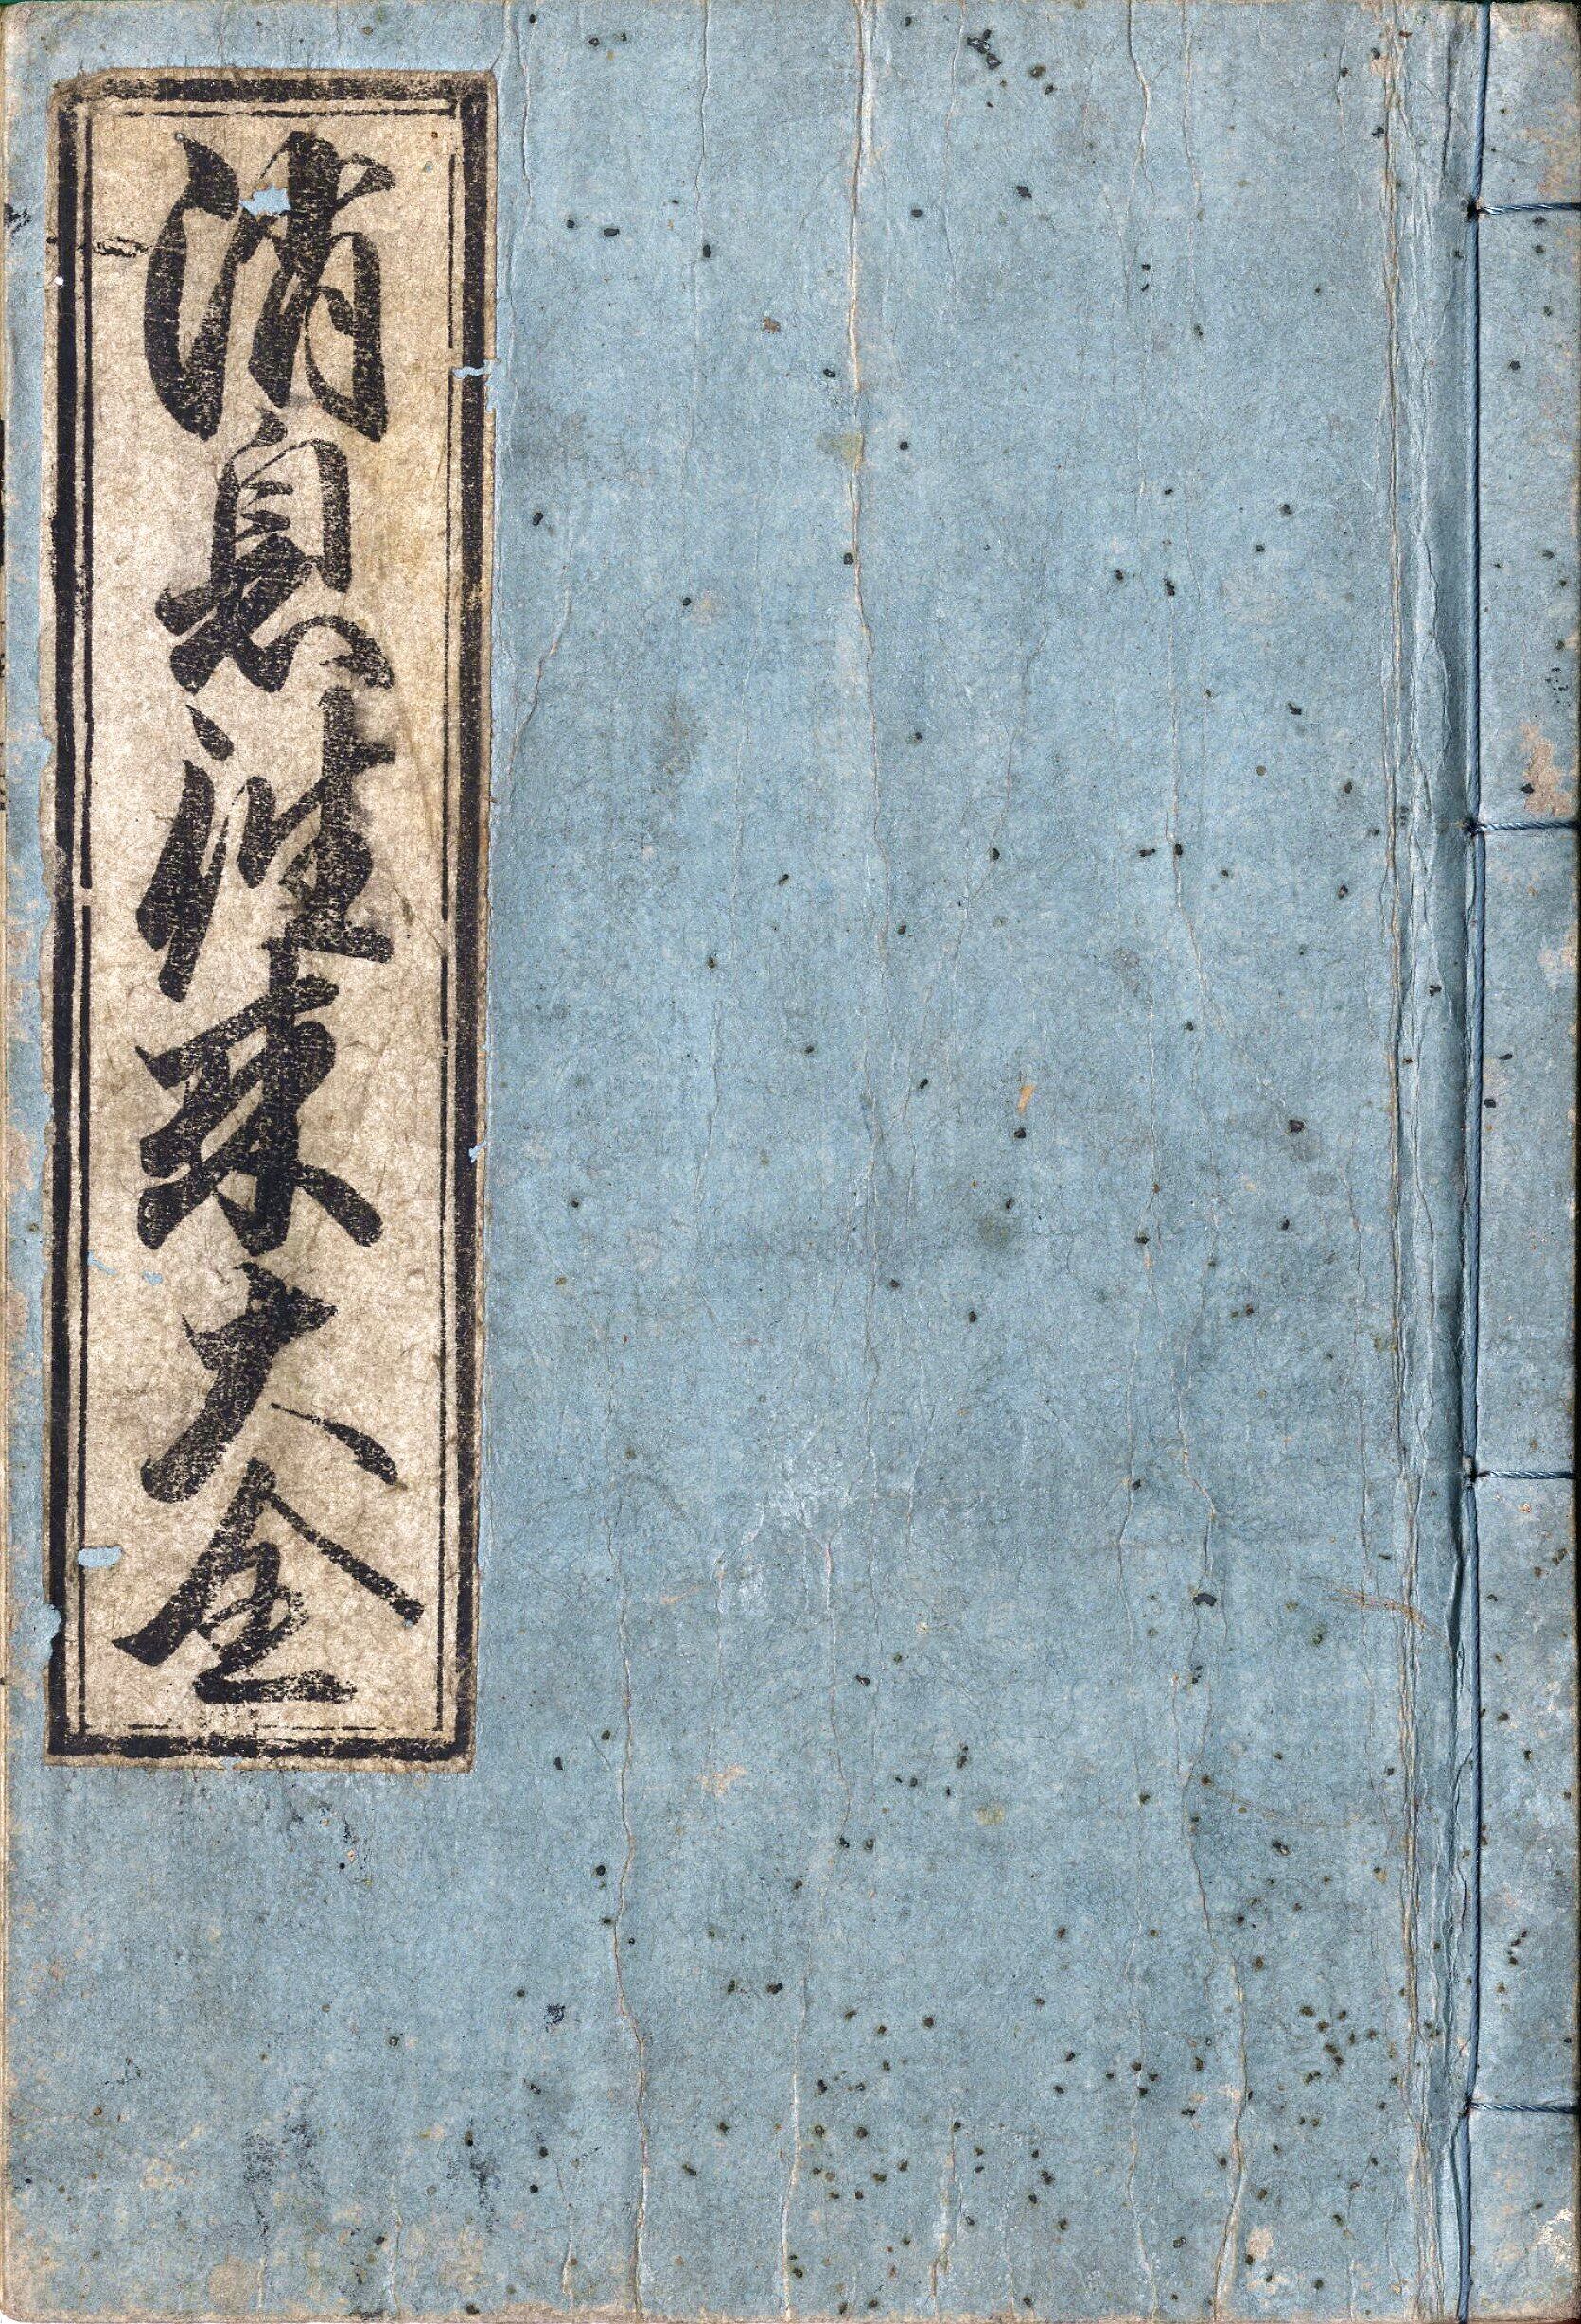 消息往来大全